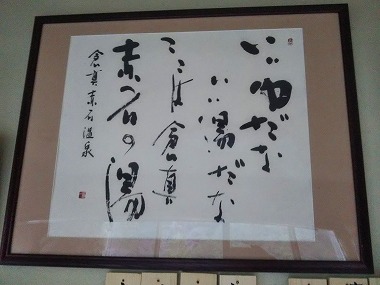 いい湯だな
いい湯だな
ここは倉真
赤石の湯
倉真赤石温泉